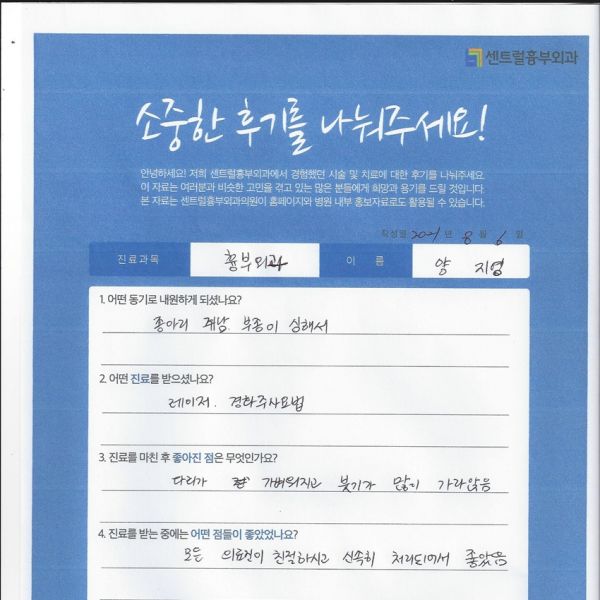 센트럴흉부외과
소중한 후기를 나눠주세요!
안녕하세요! 저희 센트럴흉부외과에서 경험했던 시술 및 치료에 대한 후기를 나눠주세요.
이 자료는 여러분과 비슷한 고민을 겪고 있는 많은 분들에게 희망과 용기를 드릴 것입니다.
본 자료는 센트럴흉부외과의원이 홈페이지와 병원 내부 홍보자료로도 활용될 수 있습니다.
작성일 2021 년 8 월 6 일
진료과목 흉부외과 이 름 양 지영
1. 어떤 동기로 내원하게 되셨나요?
종아리 부종이 심해서
2. 어떤 진료를 받으셨나요?
레이저. 경화주사요법
3. 진료를 마친 후 좋아진 점은 무엇인가요?
다리가 가벼워지고 붓기가 많이 가라앉음
4. 진료를 받는 중에는 어떤 점들이 좋았었나요?
모든 의료진이 친절하시고 신속히 처리되어서 좋았음